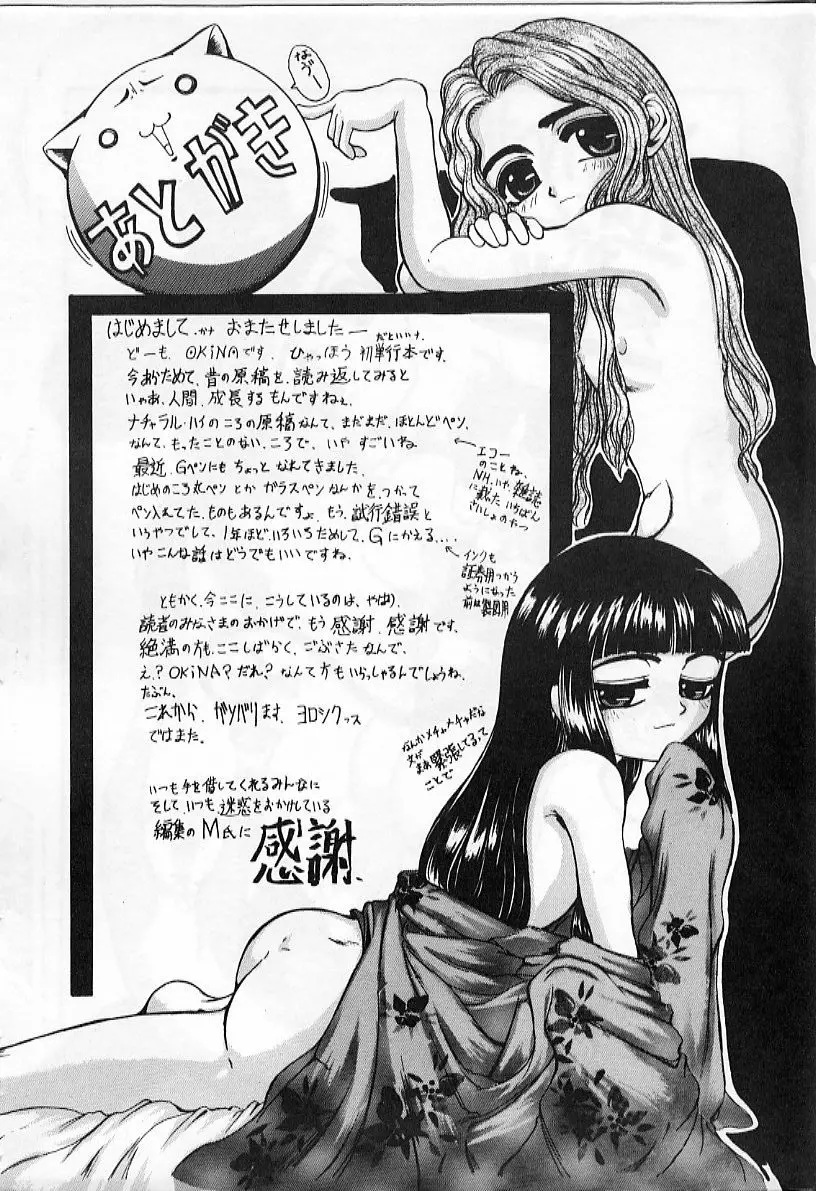 あとがき
なう゛ー
はじめまして、かな おまたせしましたー
だといいナ、
どーも、OKiNAです、ひゃっほう 初単行本です。
今あらためて、昔の原稿を、読み返してみると
いやあ、人間、成長するもんですねぇ、
ナチャラル・ハイのころの原稿なんて、まだまだ、ほとんどペン、
なんて、もったことのない、ころで、いや すごいやね
最近、Gペンにもちょっとなれてきました、
はじめのころ丸ペンとか ガラスペンなんかを、つかって
ペン入れてた、ものもあるんですよ、もう、試行錯誤と
いうやつでして、1年ほど、いろいろためして、Gにかえる‥‥
いや こんな話はどうでもいいですね、
←エコー
のことね、
NH、いや、雑誌
に載った いちばん
さいしょのやつ
←インクも
証券用つかう
ようになった
前は製図用
ともかく、今ここに、こうしているのは、やはり、
読者のみなさまのおかげで、もう 感謝、感謝です、
絶満の方も、ここしばらく、ごぶさたなんで、
え?OKiNA?だれ?なんて方もいらっしゃるんでしょうね、
たぶん、
これから、ガンバリます、ヨロシクっス
ではまた。
なんかメチャメチャだな
まあ緊張してるって
ことで
いつも手を借してくれるみんなに
そして、いつも迷惑をおかけしている
編集のM氏に
感謝、